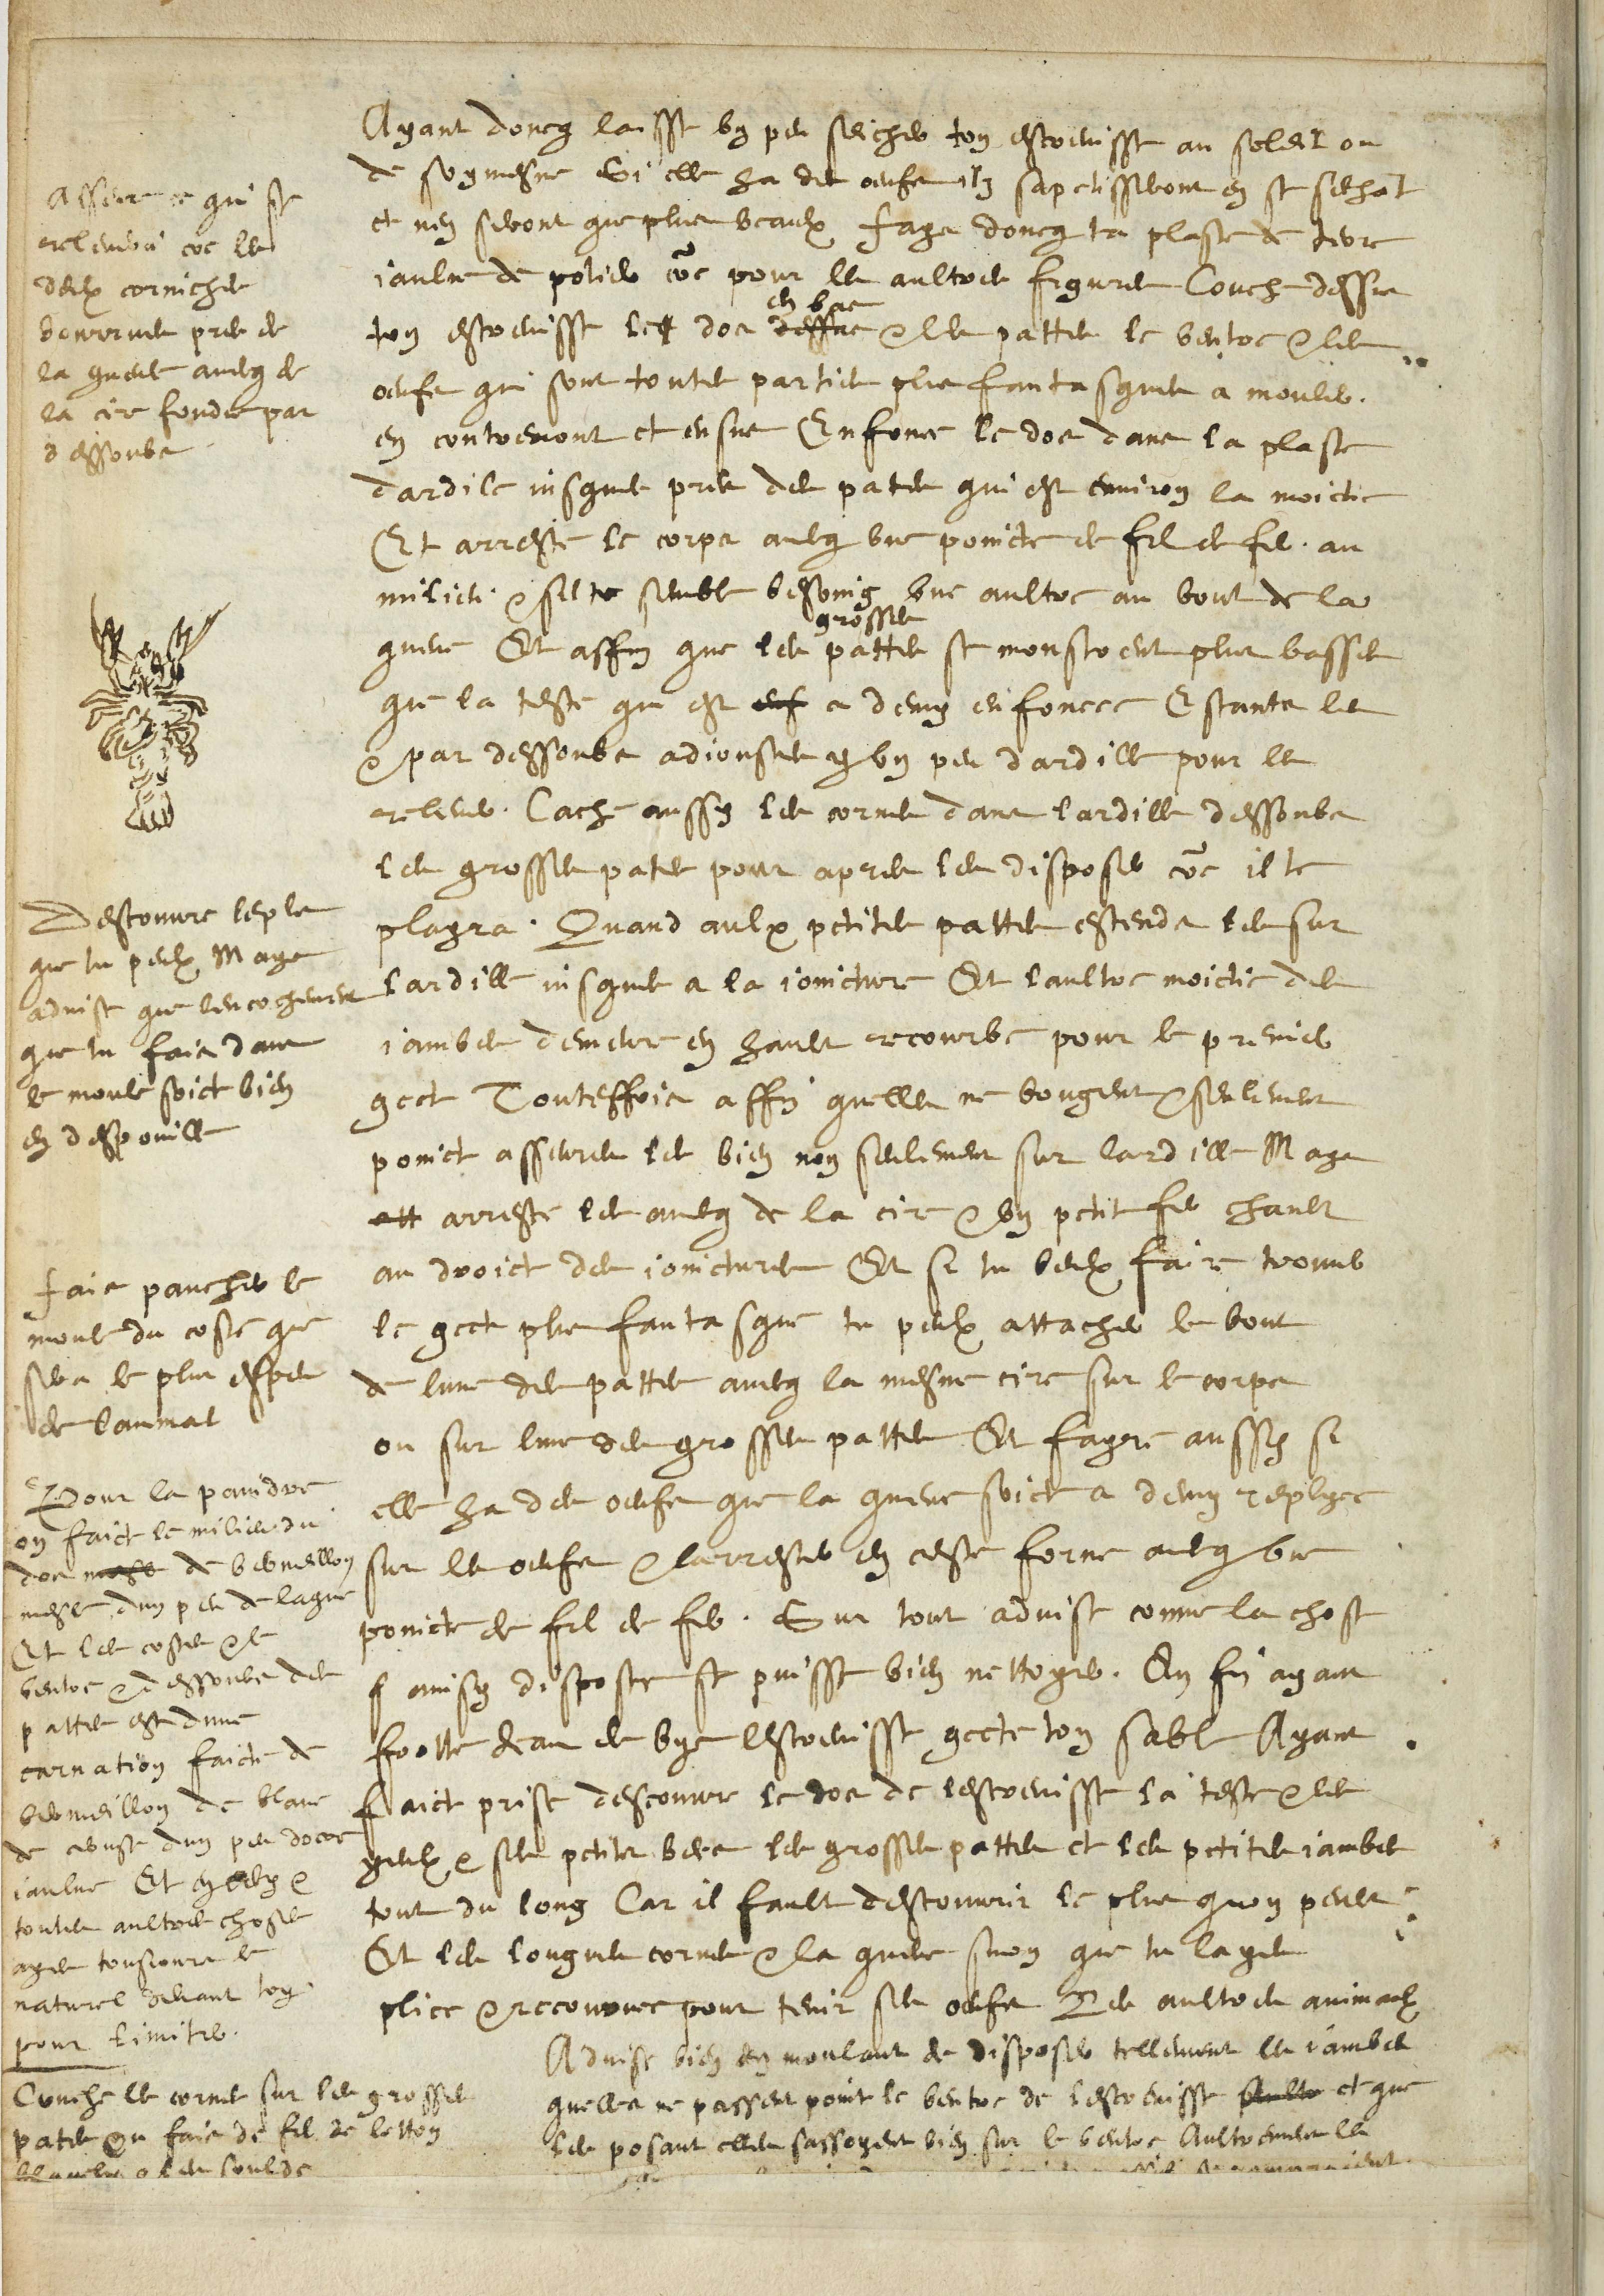 Ayant doncq laisse un peu seicher ton escrevisse au soleil ou
de soymesme Si elle ha des oeufs ilz sapetisseront en se sechant
et nen seront que plus beaulx fays doncq ta plaste de terre
jaulne de potier coe pour les aultres figures Couche dessus
en bas
ton escrevisse le dos dessus & les pattes le ventre & les
oeufs qui sont toutes parties plus fantasques a mouler
en contremont et ensus Enfonce le dos dans la plaste
dardile jusques pres des pates qui est environ la moictie
Et arreste le corps avecq une poincte de fil de fer au
milieu & sil te semble besoing une aultre au bout de la
grosses
queue Et affin que les pattes se monstrent plus basses
que la teste qui est enf a demy enfoncee Estants les
& par dessoubs adjouste un peu dardille pour les
relever Cache aussy les cornes dans lardille dessoubs
les grosses pates pour apres les disposer coe il te
playra Quand aulx petites pattes estends les sur
lardille jusques a la joincture Et laultre moictie des
jambes demeure en hault recourbe pour le premier
gect Touteffois affin quelles ne bougent & seslevent
poinct asseure les bien non seulement sur lardille Mays
att arreste les avecq de la cire & un petit fer chault
au droict des joinctures Et si tu veulx faire trouver
le gect plus fantasque tu peulx attacher le bout
de lune des pattes avecq la mesme cire sur le corps
ou sur lune des grosses pattes Et fayre aussy si
elle ha des oeufs que la queue soict a demy repliee
sur les oeufs & larrester en ceste forme avecq une
poincte de fil de fer Sur tout advise comme la chose
f ainsy disposee se puisse bien nettoyer En fin ayant
frotte deau de vye lescrevisse gecte ton sable Ayant
faict prise descouvre le dos de lescrevisse la teste & les
yeulx & ses petites les grosses pattes et les petites jambes
tout du long Car il fault descouvrir le plus quon peult
Et les longues cornes & la queue sinon que tu layes
pliee & recouvree pour tenir ses oeufs Des aultres animaulx
Advise bien en moulant de disposer tellement les jambes
quelles ne passent point le ventre de lescrevisse et que
les posant elles sassoyent bien sur le ventre Aultrement elles

Asseure ce qui se
esleveroit coe les
deulx cornichets
pres de
la gueule avecq de
la cire fondue par
dessoubs

Descouvre le plus
que tu peulx Mays
advise que lencochement
que tu fais dans
le moule soict bien
en despouille

Fais pancher le
moule du coste que
sera le plus espes
de lanimal

Pour la paindre
on faict le milieu du
dos mesl de vermeillon
mesle dun peu de laque
Et les costes & le
ventre & dessoubs des
pattes est dune
carnation faicte de
vermeillon de blanc
de ceruse dun peu docre
jaulne Et en cela &
toutes aultres choses
ayes tousjours le
naturel devant toy
pour limiter

Couche les cornes sur les grosses
pates ou fais de fil de letton
& les soulde